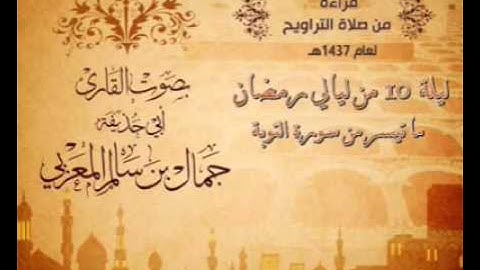 قراءة
من صلاة التراويح
لعام 1437هـ
ليلة 10 من ليالي رمضان
ما تيسر من سورة التوبة
بصوت القارئ
أبي حذيفة
جمال بن سالم المعزبي